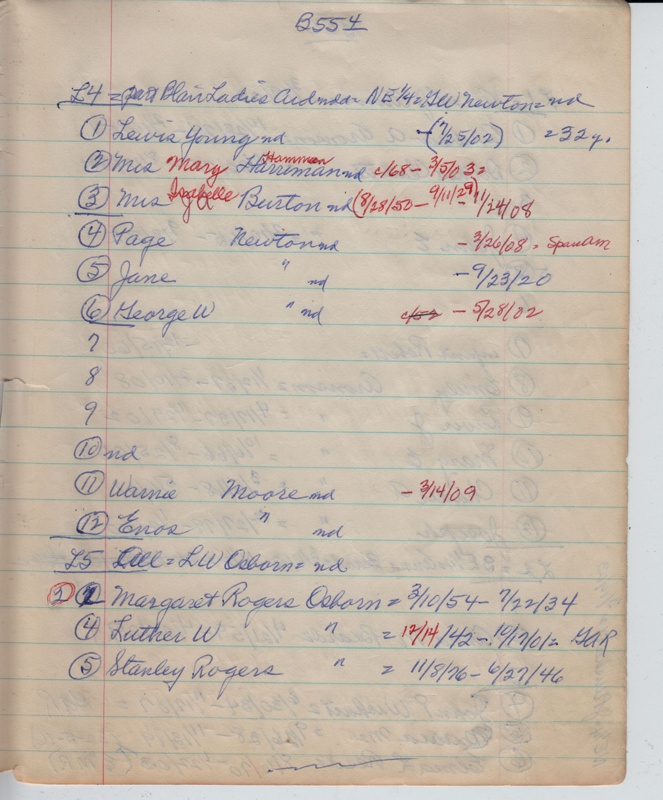 B554
L4 = Blair Ladies Aid = nd = NE 1/4 = GW Newton = nd
① Lewis Young nd - (7/25/02) = 32 y.
② Mrs Mary Harriman Hamman nd c/68 - 3/5/03 =
③ Mrs Izabelle Burton nd (8/28/50 - 9/11/29) 11/24/08
④ Page Newton nd - 3/26/08 = SpanAm
⑤ Jane " nd - 9/23/20
⑥ George W " nd c/52 - 5/28/02
7
8
9
⑩ nd
⑪ Warnie Moore nd - 3/14/09
⑫ Enos " nd
L5 All = LW Osborn = nd
② Margaret Rogers Osborn = 3/10/54 - 7/22/34
④ Luther W " = 12/14/42 - 10/17/01 = GAR
⑤ Stanley Rogers " = 11/8/76 - 6/27/46